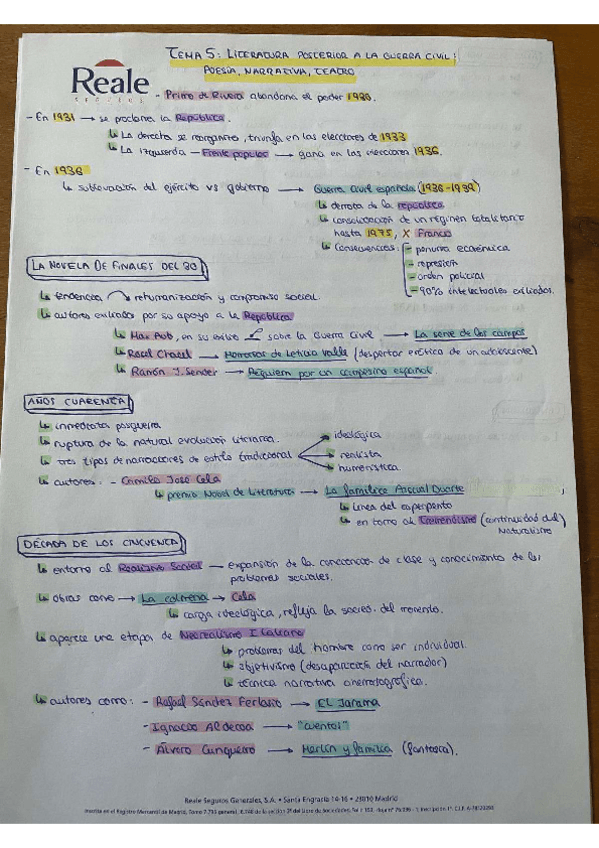 TEMA 5: LITERATURA POSTERIOR A LA GUERRA CIVIL:
POESÍA, NARRATIVA, TEATRO
Reale
SEGUROS
- Primo de Rivera abandona el poder 1930.
- En 1931 → se proclama la República.
↳ La derecha se reorganiza, triunfa en las elecciones de 1933
↳ La izquierda - Frente popular → ganó en las elecciones 1936.
- En 1936
↳ sublevación del ejército vs gobierno → Guerra Civil española (1936-1939)
↳ derrota de la república
↳ consolidación de un régimen totalitario
hasta 1975, X Franco
↳ Consecuencias: - penuria económica
- represión
- orden policial
- 90% intelectuales exiliados.
LA NOVELA DE FINALES DEL 30
↳ tendencia → rehumanización y compromiso social.
↳ autores exiliados por su apoyo a la República
↳ Max Aub, en su exilio sobre la Guerra Civil → La serie de los campos
↳ Rosa Chacel → Memorias de Leticia Valle (despertar erótico de un adolescente)
↳ Ramón J. Sender → Réquiem por un campesino español.
AÑOS CUARENTA
↳ inmediata posguerra
↳ ruptura de la natural evolución literaria.
↳ tres tipos de narraciones de estilo tradicional
ideológica
realista
humorística
↳ autores: - Camilo José Cela
↳ premio Nobel de Literatura → La familia Pascual Duarte
↳ línea del esperpento
↳ en torno al Tremendismo (continuidad del
Naturalismo
DÉCADA DE LOS CINCUENTA
↳ entorno al Realismo Social - expansión de la conciencia de clase y conocimiento de los
problemas sociales.
↳ obras como → La colmena → Cela
↳ carga ideológica, refleja la socied. del momento.
↳ aparece una etapa de Neorrealismo Italiano
↳ problemas del hombre como ser individual.
↳ objetivismo (desaparición del narrador)
↳ técnica narrativa cinematográfica.
↳ autores como: - Rafael Sánchez Ferlosio → El Jarama
- Ignacio Aldecoa → "cuentos"
- Álvaro Cunqueiro → Merlín y familia (fantasía).
Reale Seguros Generales, S.A. • Santa Engracia 14-16 • 28010 Madrid